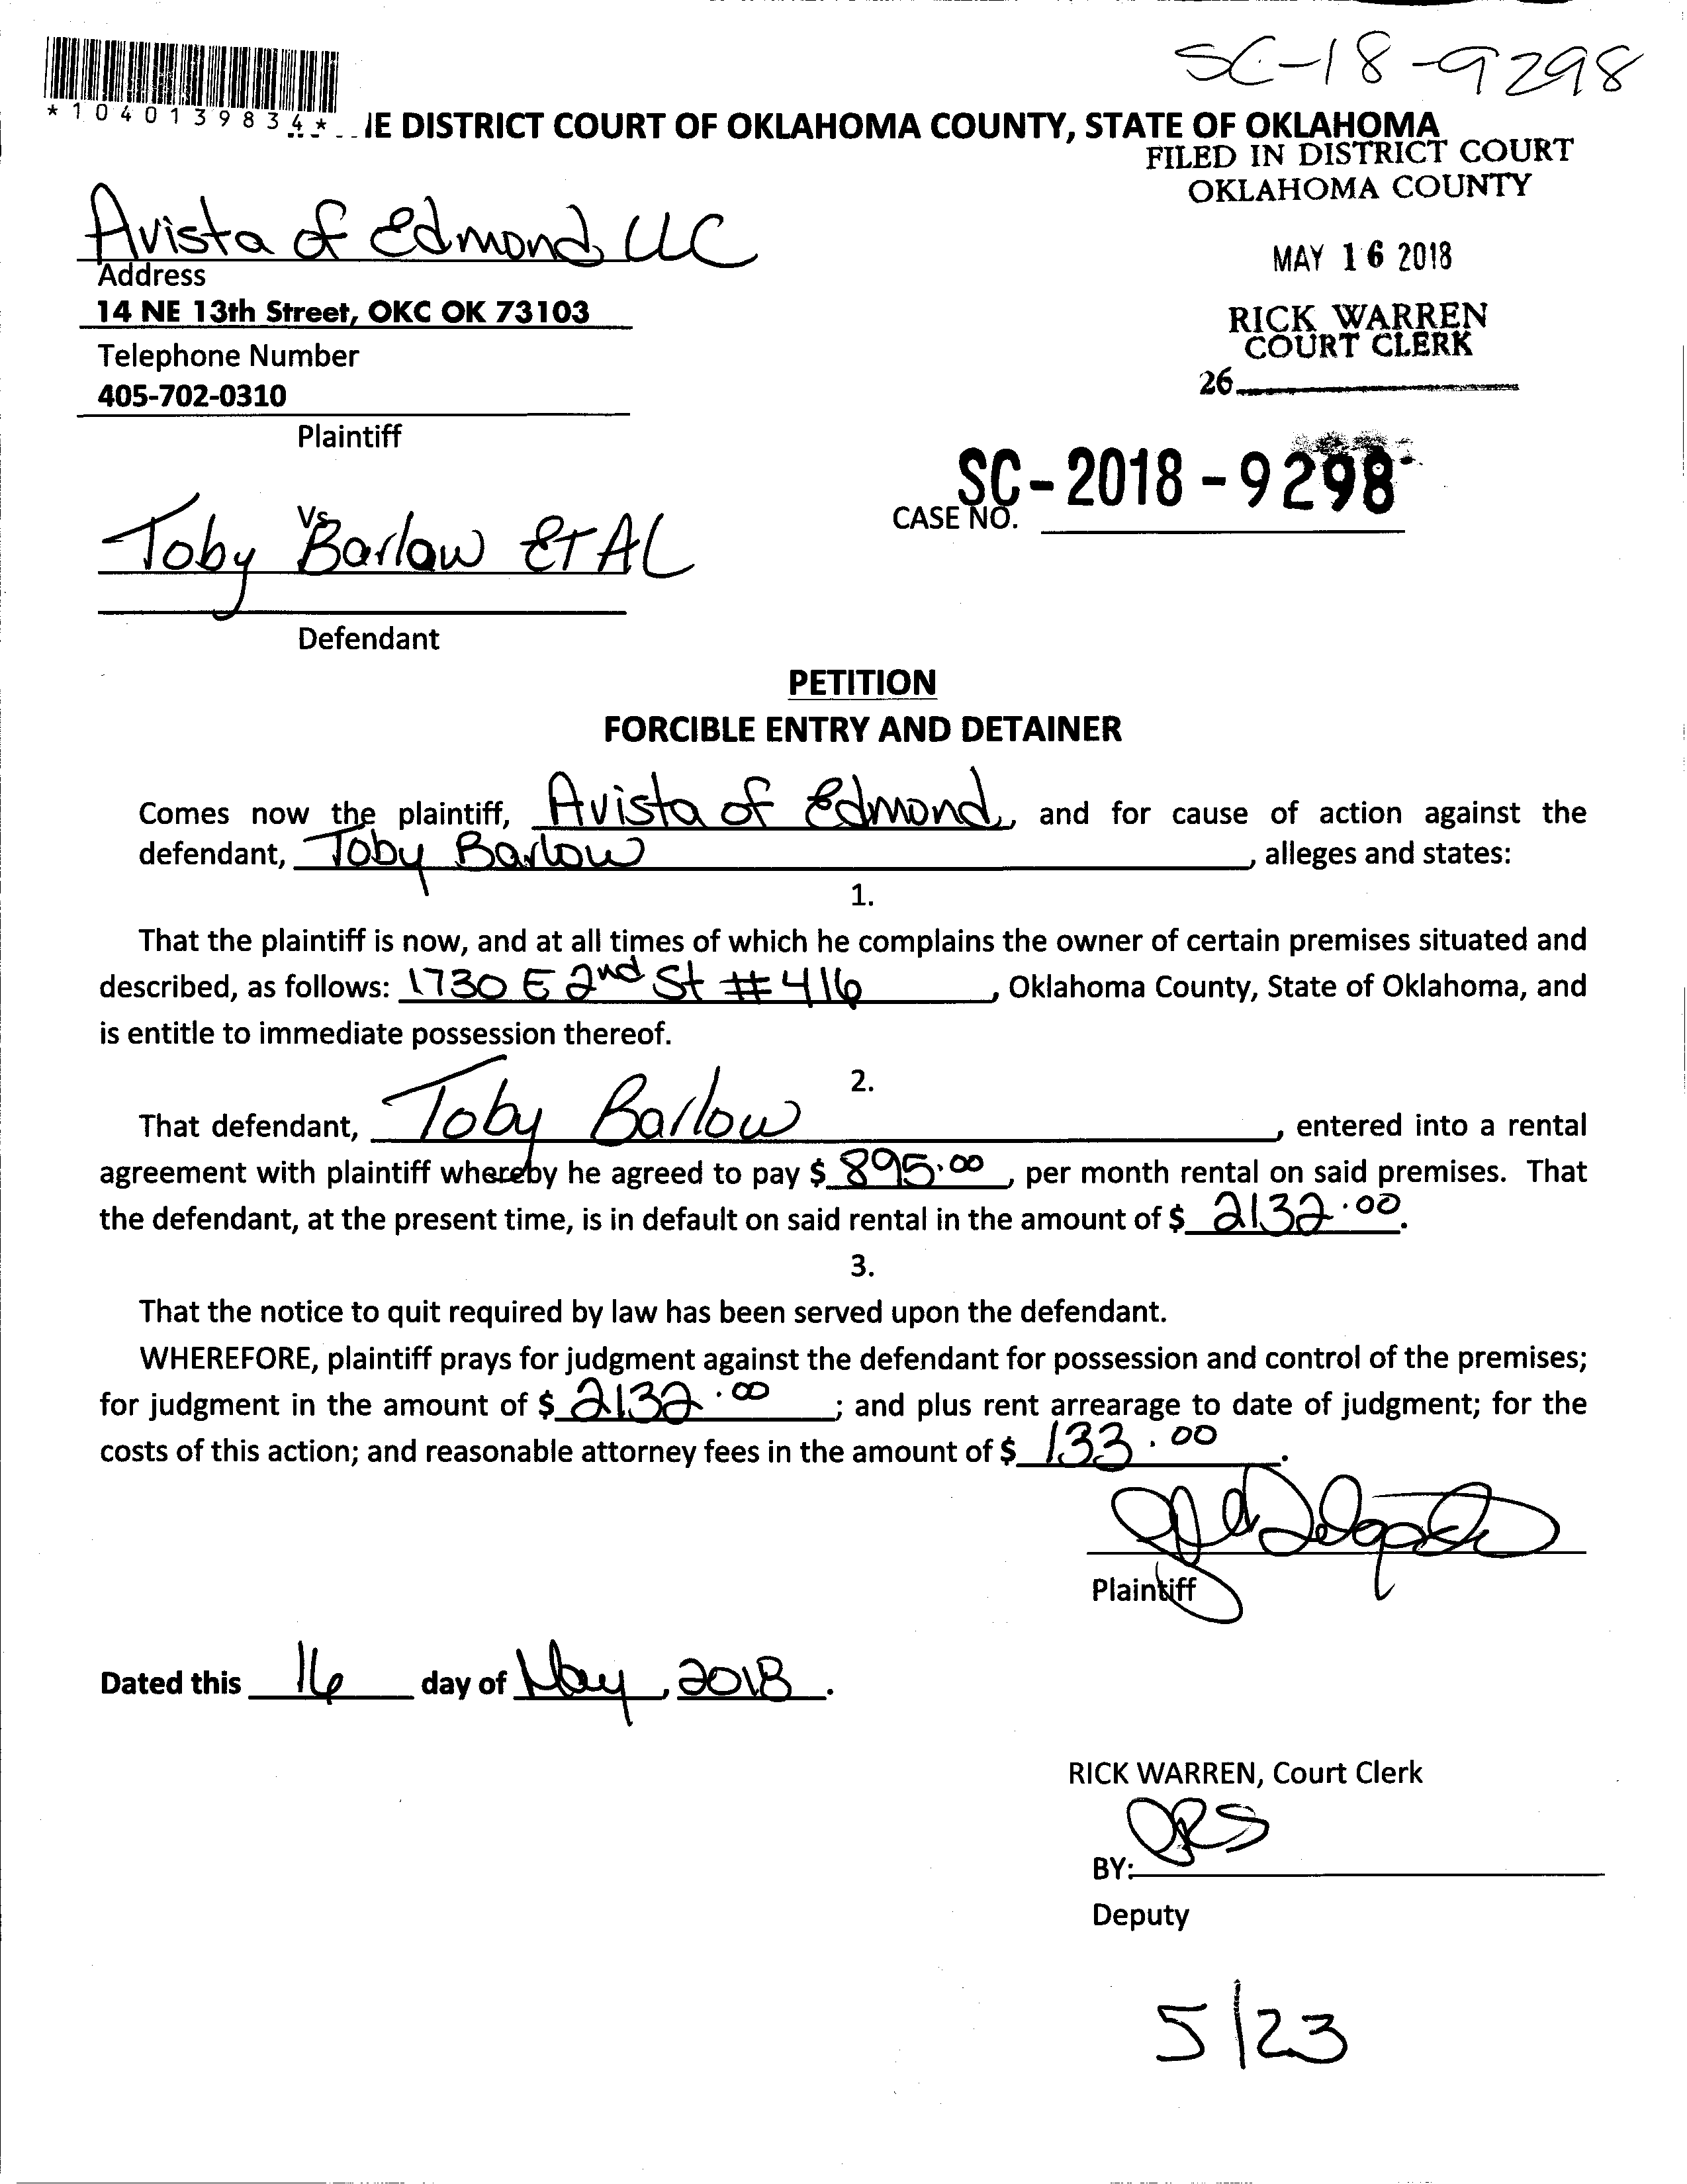 SC-18-9298
*1040139834*
IE DISTRICT COURT OF OKLAHOMA COUNTY, STATE OF OKLAHOMA
FILED IN DISTRICT COURT
OKLAHOMA COUNTY
Avista of Edmond, LLC
MAY 16 2018
Address
14 NE 13th Street, OKC OK 73103
RICK WARREN
COURT CLERK
Telephone Number
26
405-702-0310
Plaintiff
SC-2018-9298
CASE NO.
Vs
Toby Barlow ET AL
Defendant
PETITION
FORCIBLE ENTRY AND DETAINER
Comes now the plaintiff, Avista of Edmond, and for cause of action against the
defendant, Toby Barlow, alleges and states:
1.
That the plaintiff is now, and at all times of which he complains the owner of certain premises situated and
described, as follows: 1730 E 2nd St #416, Oklahoma County, State of Oklahoma, and
is entitle to immediate possession thereof.
2.
That defendant, Toby Barlow, entered into a rental
agreement with plaintiff whereby he agreed to pay $ 895.00, per month rental on said premises. That
the defendant, at the present time, is in default on said rental in the amount of $ 2132.00.
3.
That the notice to quit required by law has been served upon the defendant.
WHEREFORE, plaintiff prays for judgment against the defendant for possession and control of the premises;
for judgment in the amount of $ 2132.00; and plus rent arrearage to date of judgment; for the
costs of this action; and reasonable attorney fees in the amount of $ 133.00.
Plaintiff
Dated this 16 day of May, 2018.
RICK WARREN, Court Clerk
BY:
Deputy
5/23